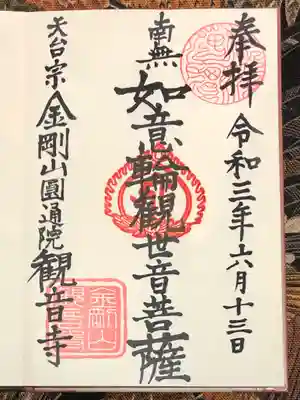 奉拝 令和三年六月十三日
南無
如意輪觀世音菩薩
天台宗 金剛山圓通院 観音寺
金剛山